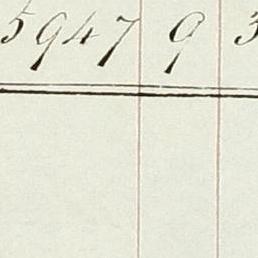 5947 9 3